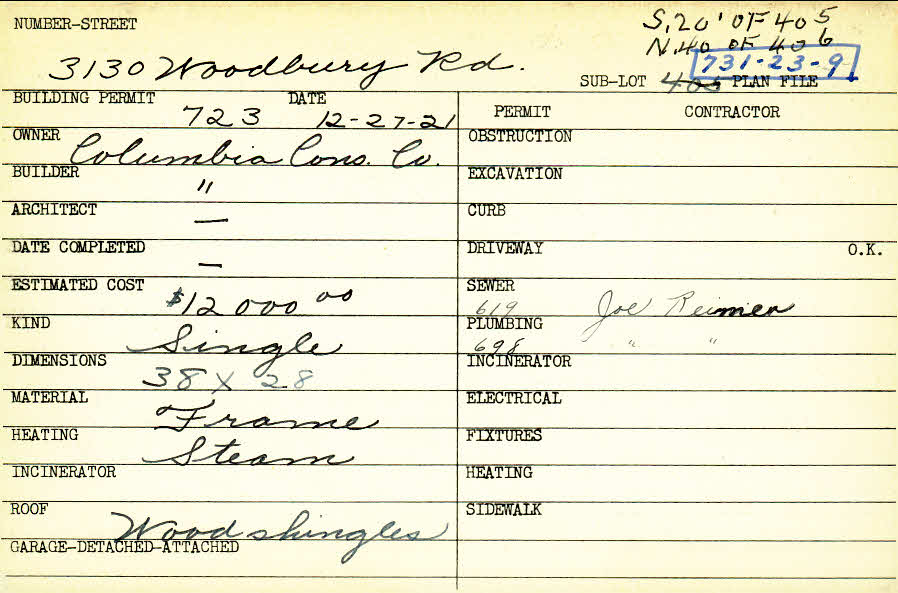 NUMBER-STREET
S. 20' OF 405
N. 40 OF 406
3130 Woodbury Rd.
731-23-9
SUB-LOT 405 PLAN FILE
BUILDING PERMIT 723 DATE 12-27-21
PERMIT CONTRACTOR
OWNER Columbia Cons. Co.
OBSTRUCTION
BUILDER "
EXCAVATION
ARCHITECT —
CURB
DATE COMPLETED —
DRIVEWAY O.K.
ESTIMATED COST $12000 00
SEWER 619 Joe Reimer
KIND Single
PLUMBING 698 " "
DIMENSIONS 38 X 28
INCINERATOR
MATERIAL Frame
ELECTRICAL
HEATING Steam
FIXTURES
INCINERATOR
HEATING
ROOF Wood shingles
SIDEWALK
GARAGE-DETACHED-ATTACHED